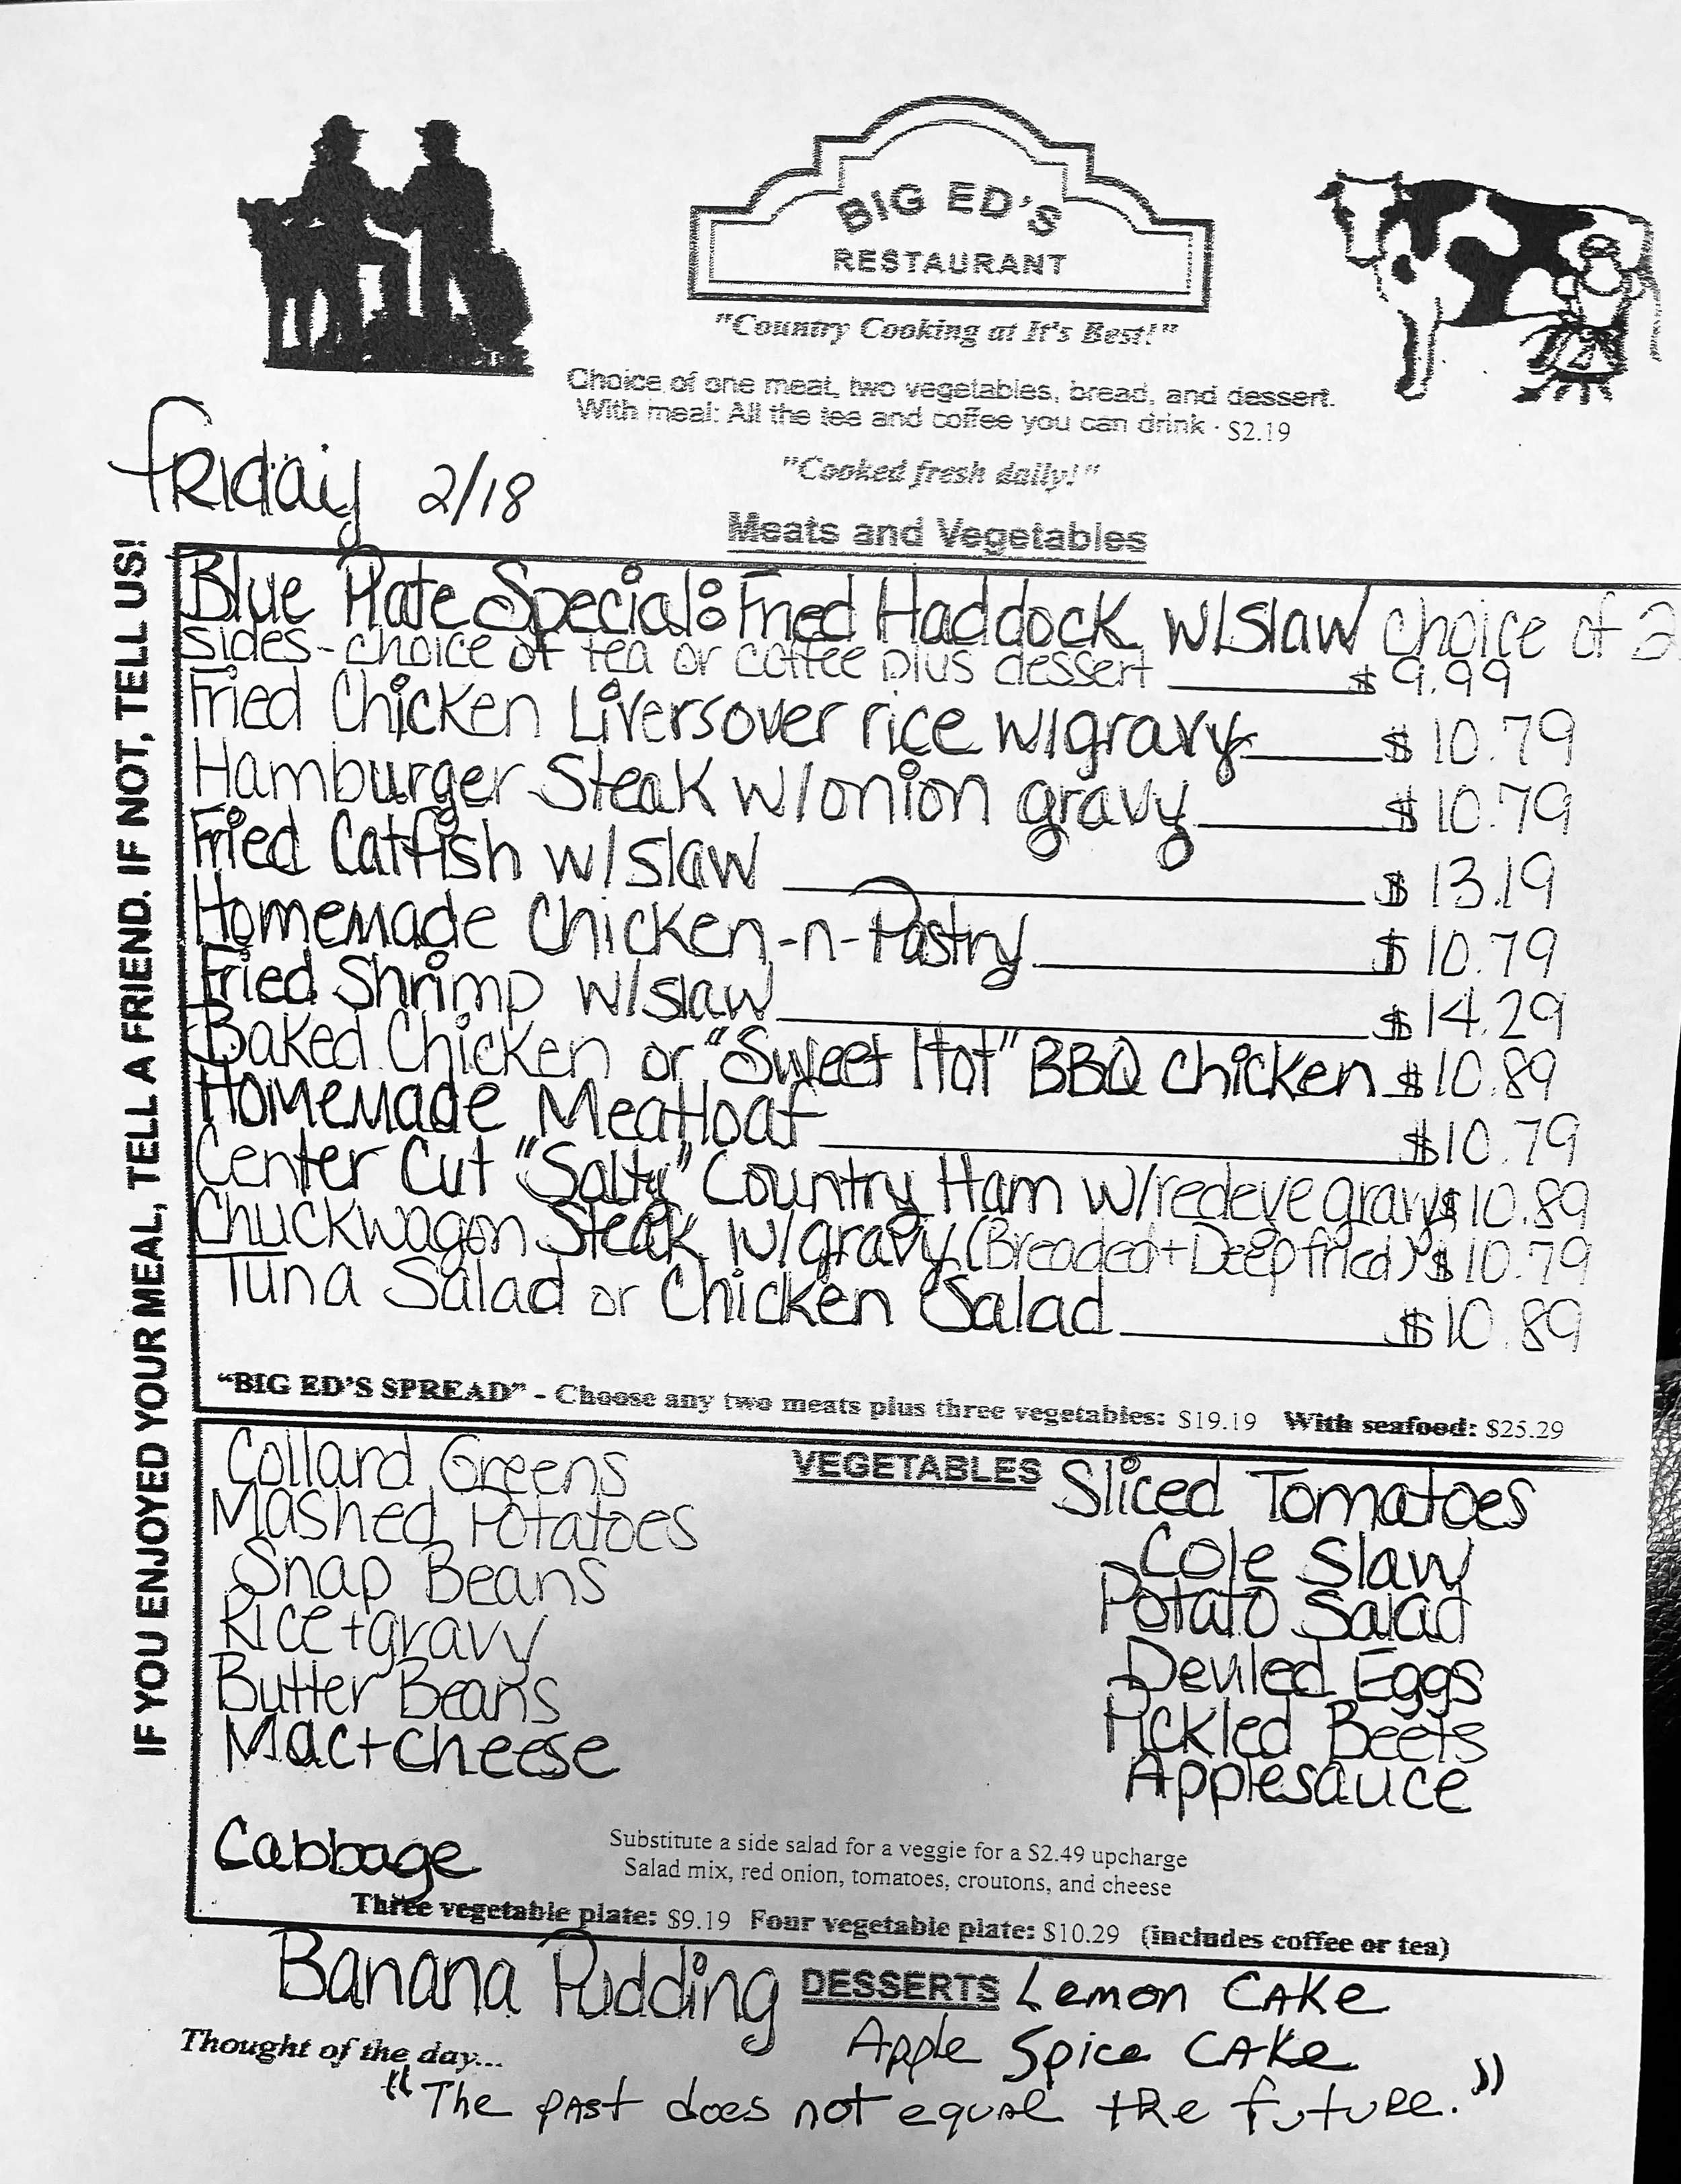 BIG ED'S
RESTAURANT
"Country Cooking at It's Best!"
Choice of one meat, two vegetables, bread, and dessert.
With meal: All the tea and coffee you can drink · $2.19
"Cooked fresh daily!"
Friday 2/18
Meats and Vegetables
IF YOU ENJOYED YOUR MEAL, TELL A FRIEND. IF NOT, TELL US!
Blue Plate Special: Fried Haddock w/slaw choice of 2
sides - choice of tea or coffee plus dessert $ 9.99
Fried Chicken Livers over rice w/gravy $ 10.79
Hamburger Steak w/onion gravy $ 10.79
Fried Catfish w/slaw $ 13.19
Homemade Chicken-n-Pastry $ 10.79
Fried Shrimp w/slaw $ 14.29
Baked Chicken or "Sweet Hot" BBQ Chicken $ 10.89
Homemade Meatloaf $10.79
Center Cut "Salty" Country Ham w/redeye gravy $ 10.89
Chuckwagon Steak w/gravy (Breaded + Deep fried) $ 10.79
Tuna Salad or Chicken Salad $10.89
"BIG ED'S SPREAD" - Choose any two meats plus three vegetables: $19.19 With seafood: $25.29
VEGETABLES
Collard Greens
Mashed Potatoes
Snap Beans
Rice + gravy
Butter Beans
Mac + cheese
Cabbage
Sliced Tomatoes
Cole Slaw
Potato Salad
Deviled Eggs
Pickled Beets
Applesauce
Substitute a side salad for a veggie for a $2.49 upcharge
Salad mix, red onion, tomatoes, croutons, and cheese
Three vegetable plate: $9.19 Four vegetable plate: $10.29 (includes coffee or tea)
Banana Pudding DESSERTS Lemon CAKe
Apple Spice CAKe
Thought of the day...
"The past does not equal the future."